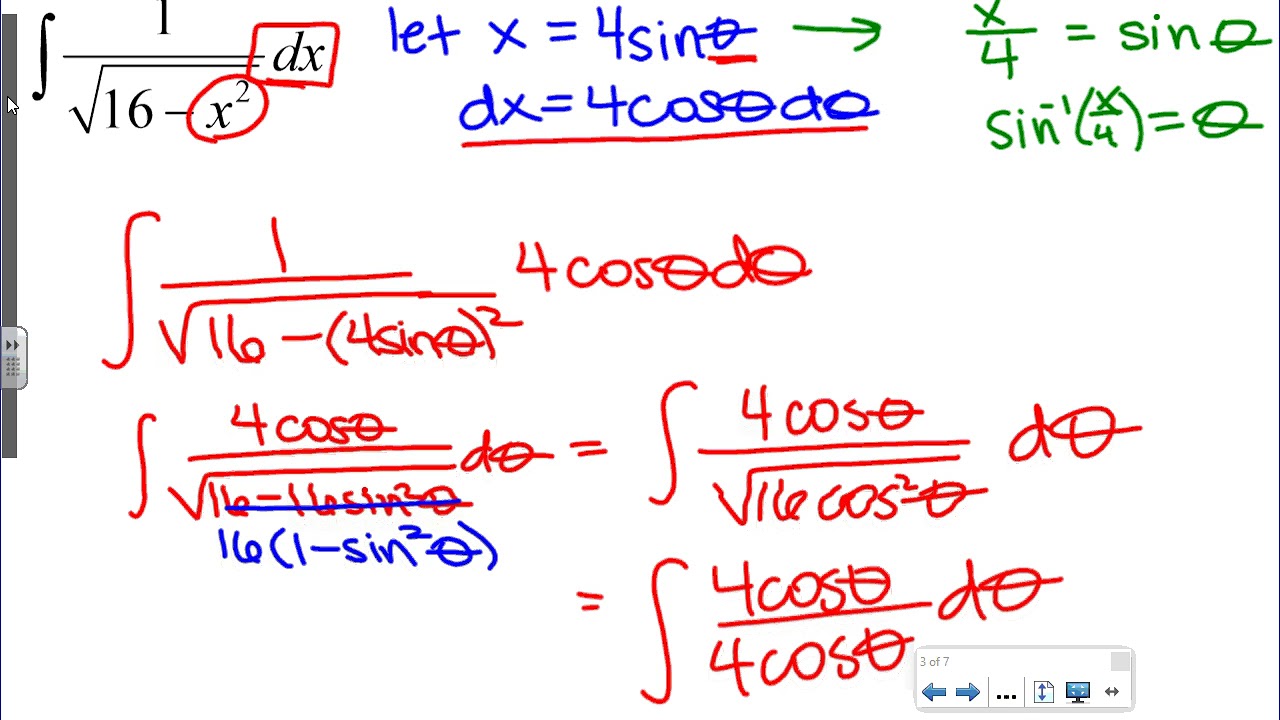 ∫ 1/√(16 − x²) dx
let x = 4sinθ → x/4 = sinθ
dx = 4cosθdθ
sin⁻¹(x/4) = θ
∫ 1/√(16 − (4sinθ)²) 4cosθdθ
∫ 4cosθ/√(16 − 16sin²θ) dθ = ∫ 4cosθ/√(16cos²θ) dθ
16(1 − sin²θ)
= ∫ 4cosθ/4cosθ dθ
3 of 7
...